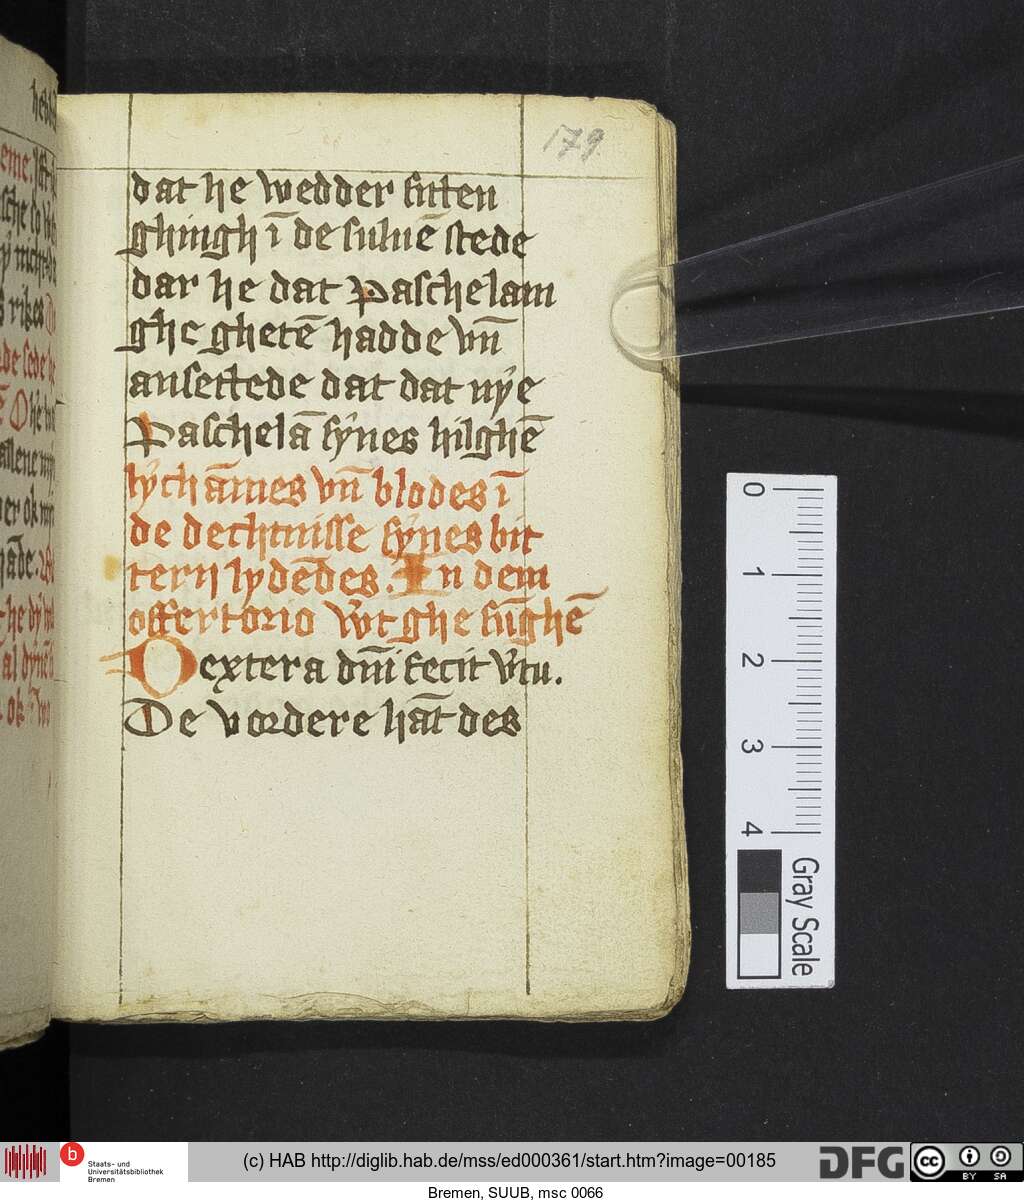 179.
dat he wedder sitten
ghingh ī de suluē stede
dar he dat Paschelam
ghe ghetē hadde vn̄
ansettede dat dat nẏe
Paschelā sẏnes hilghē
lẏchāmes vn̄ blodes ī
de dechtnisse sẏnes bit
tern lydēdes. In dem
offertorio wt ghe sūghē
Dextera dn̄i fecit v̓tu.
De vordere hāt des
0
1
2
3
4
Gray Scale
b Staats- und
Universitätsbibliothek
Bremen
(c) HAB http://diglib.hab.de/mss/ed000361/start.htm?image=00185
DFG
cc
BY SA
Bremen, SUUB, msc 0066